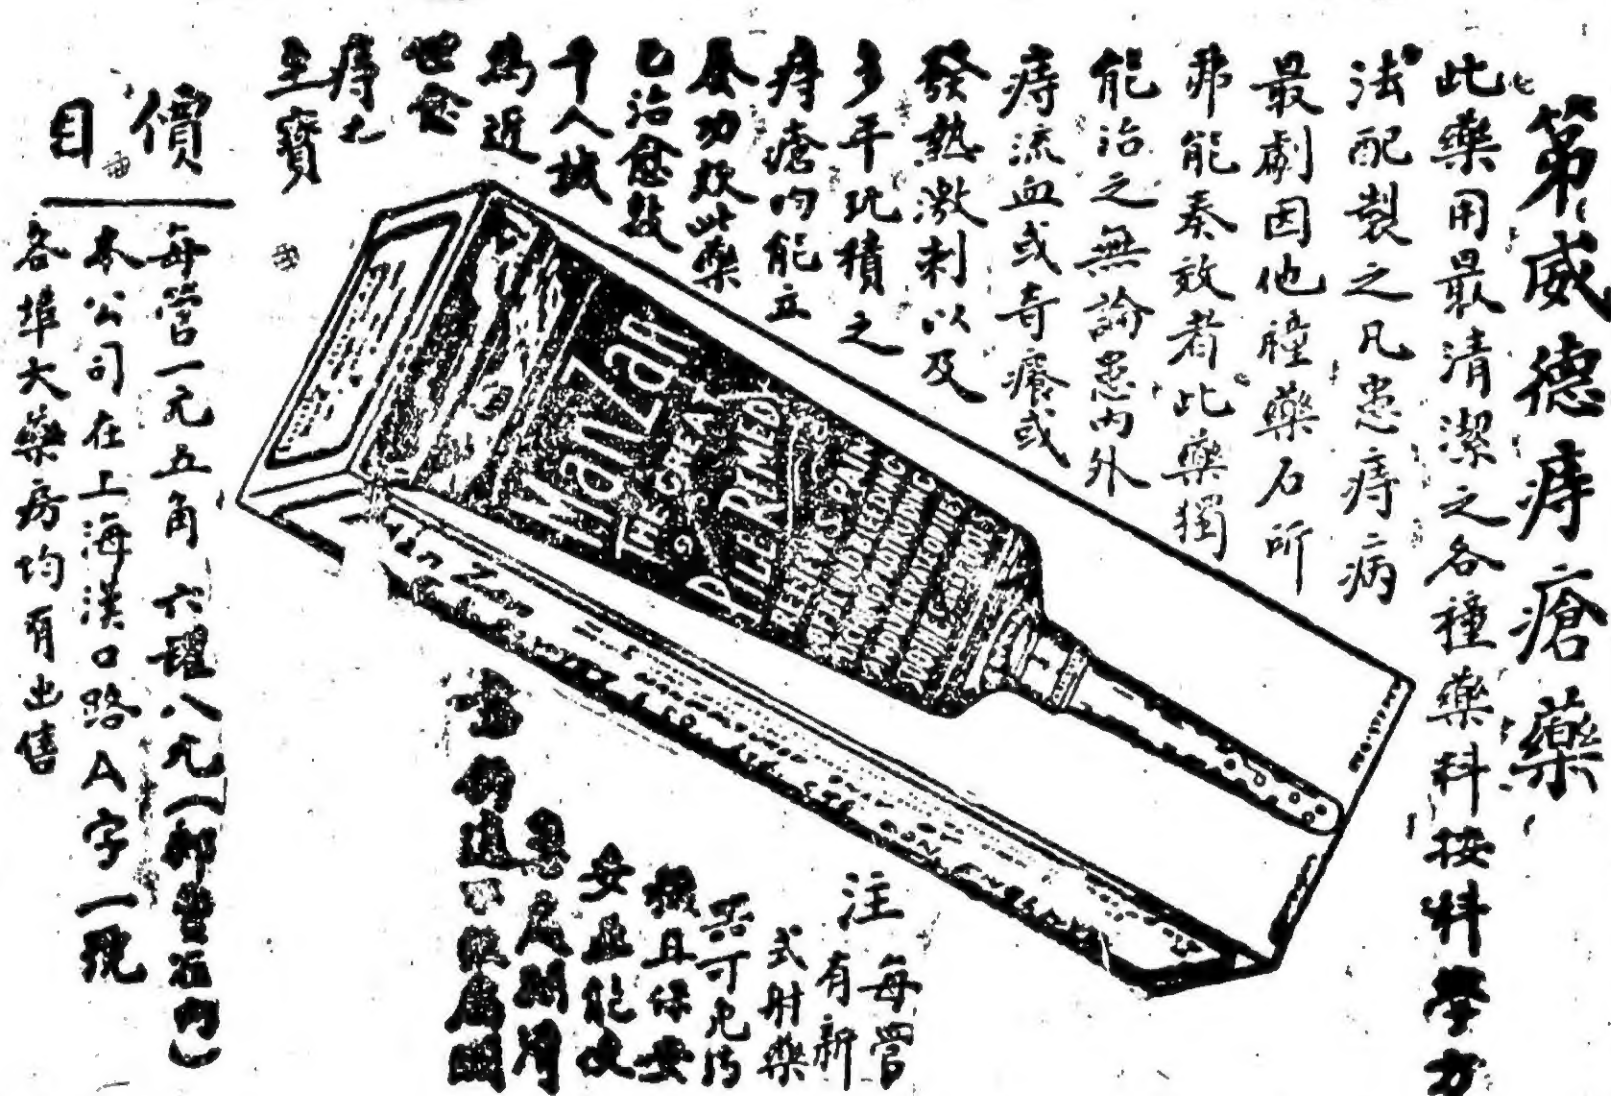 第威德痔瘡藥
此藥用最清潔之各種藥料按科學方
法配製之凡患痔病
最劇因他種藥石所
弗能奏效者此藥獨
能治之無論患內外
痔流血或奇癢或
發熱激刺以及
多年玩積之
痔瘡均能立
奏功效此藥
已治愈數
千人誠
為近
世愈
痔之
至寶
ManZan
THE GREAT
PILE REMEDY
RELIEVES PAIN
注
每管
有新
式射藥
器可免污
穢且保安
價目
每管一元五角 六罐八元(郵費在內)
本公司在上海漢口路A字一號
各埠大藥房均有出售